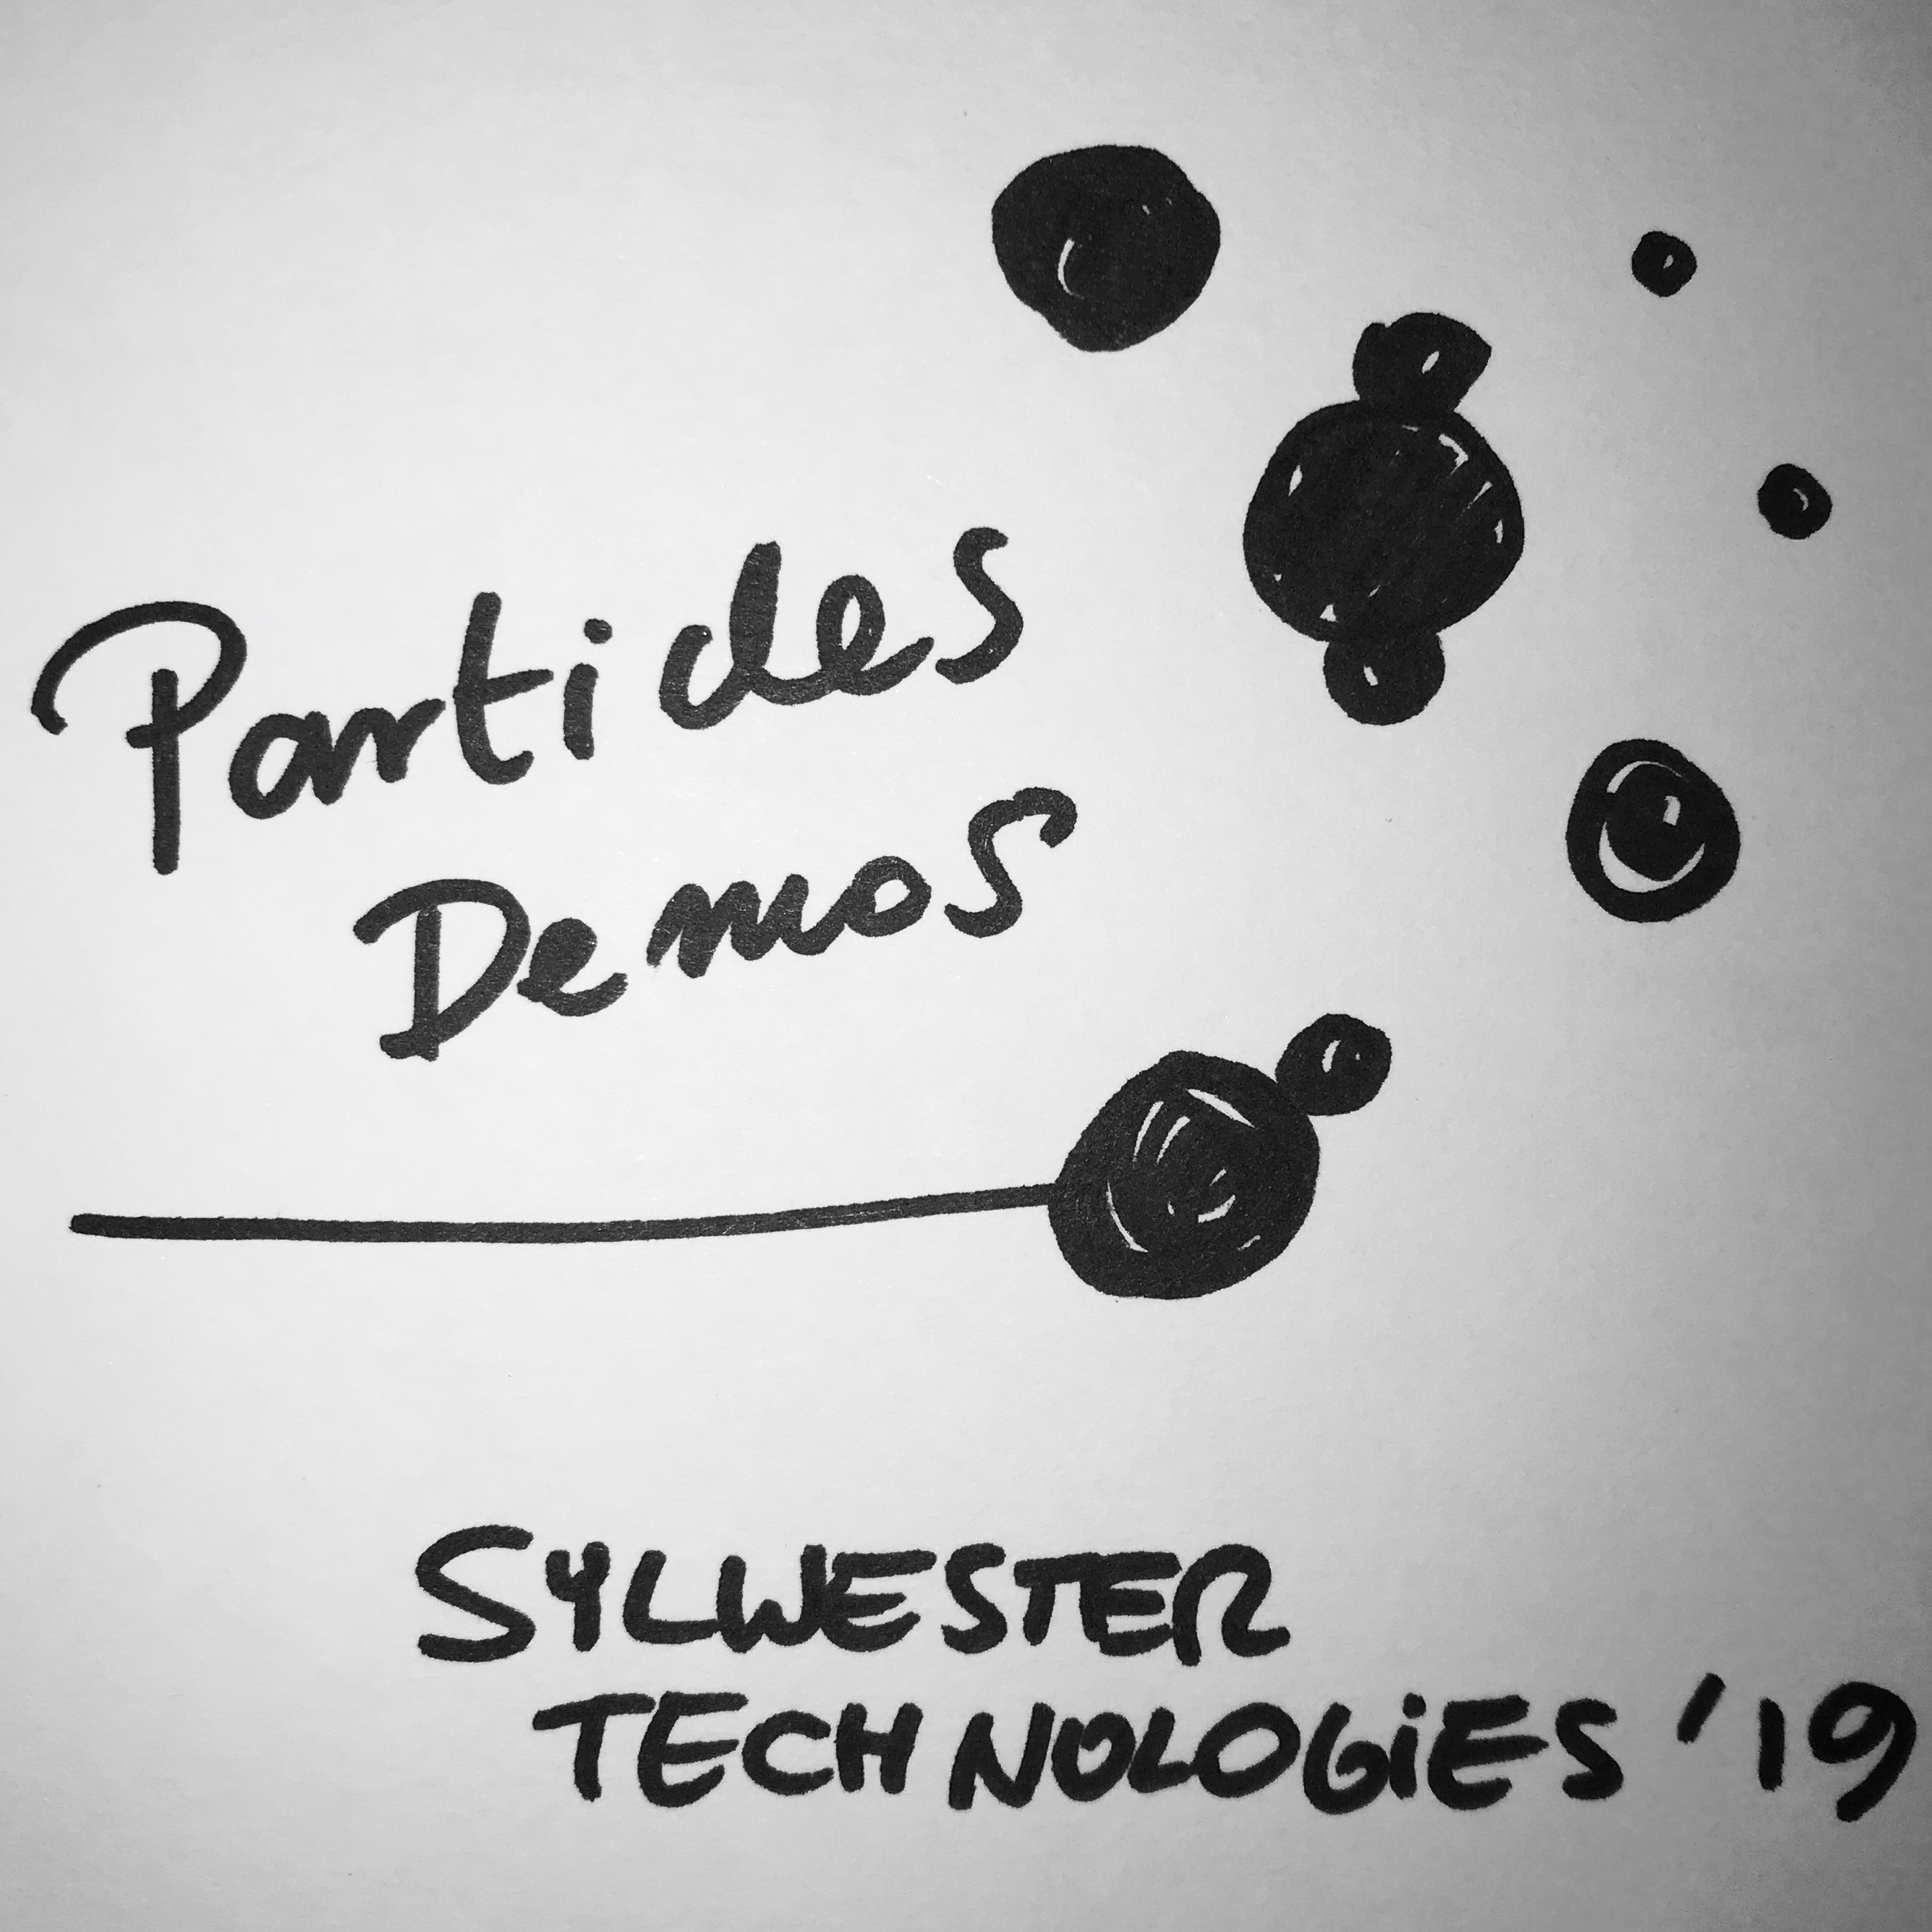 Particles
Demos
SYLWESTER
TECHNOLOGIES '19